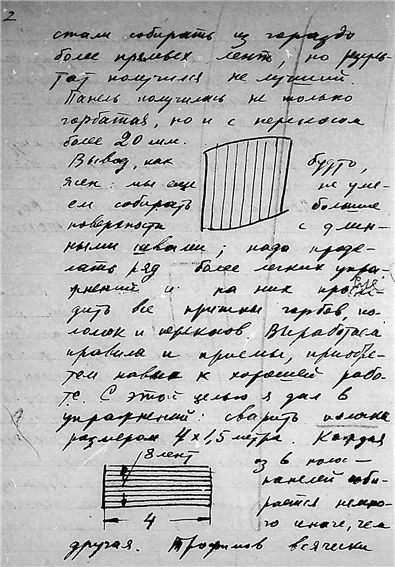 2
стали собирать из гораздо
более прямых лент, но резуль-
тат получился не лучший
Панель получилась не только
горбатая, но и с перекосом
более 20 мм.
Вывод, как будто,
ясен: мы еще не уме-
ем собирать большие
поверхности с длин-
ными швами; надо проде-
лать ряд более легких упра-
жнений и на них просле-
дить все причины горбов, по-
ломок и перекосов Выработать
правила и приемы, приобре-
тем навык к хорошей рабо-
те. С этой целью я дал 6
упражнений: сварить полосы
размером 4 х 1,5 метра. Каждая
8 лент
из 6 полос-
панелей соби-
рается немно-
4
го иначе, чем
другая. Трофимов всячески